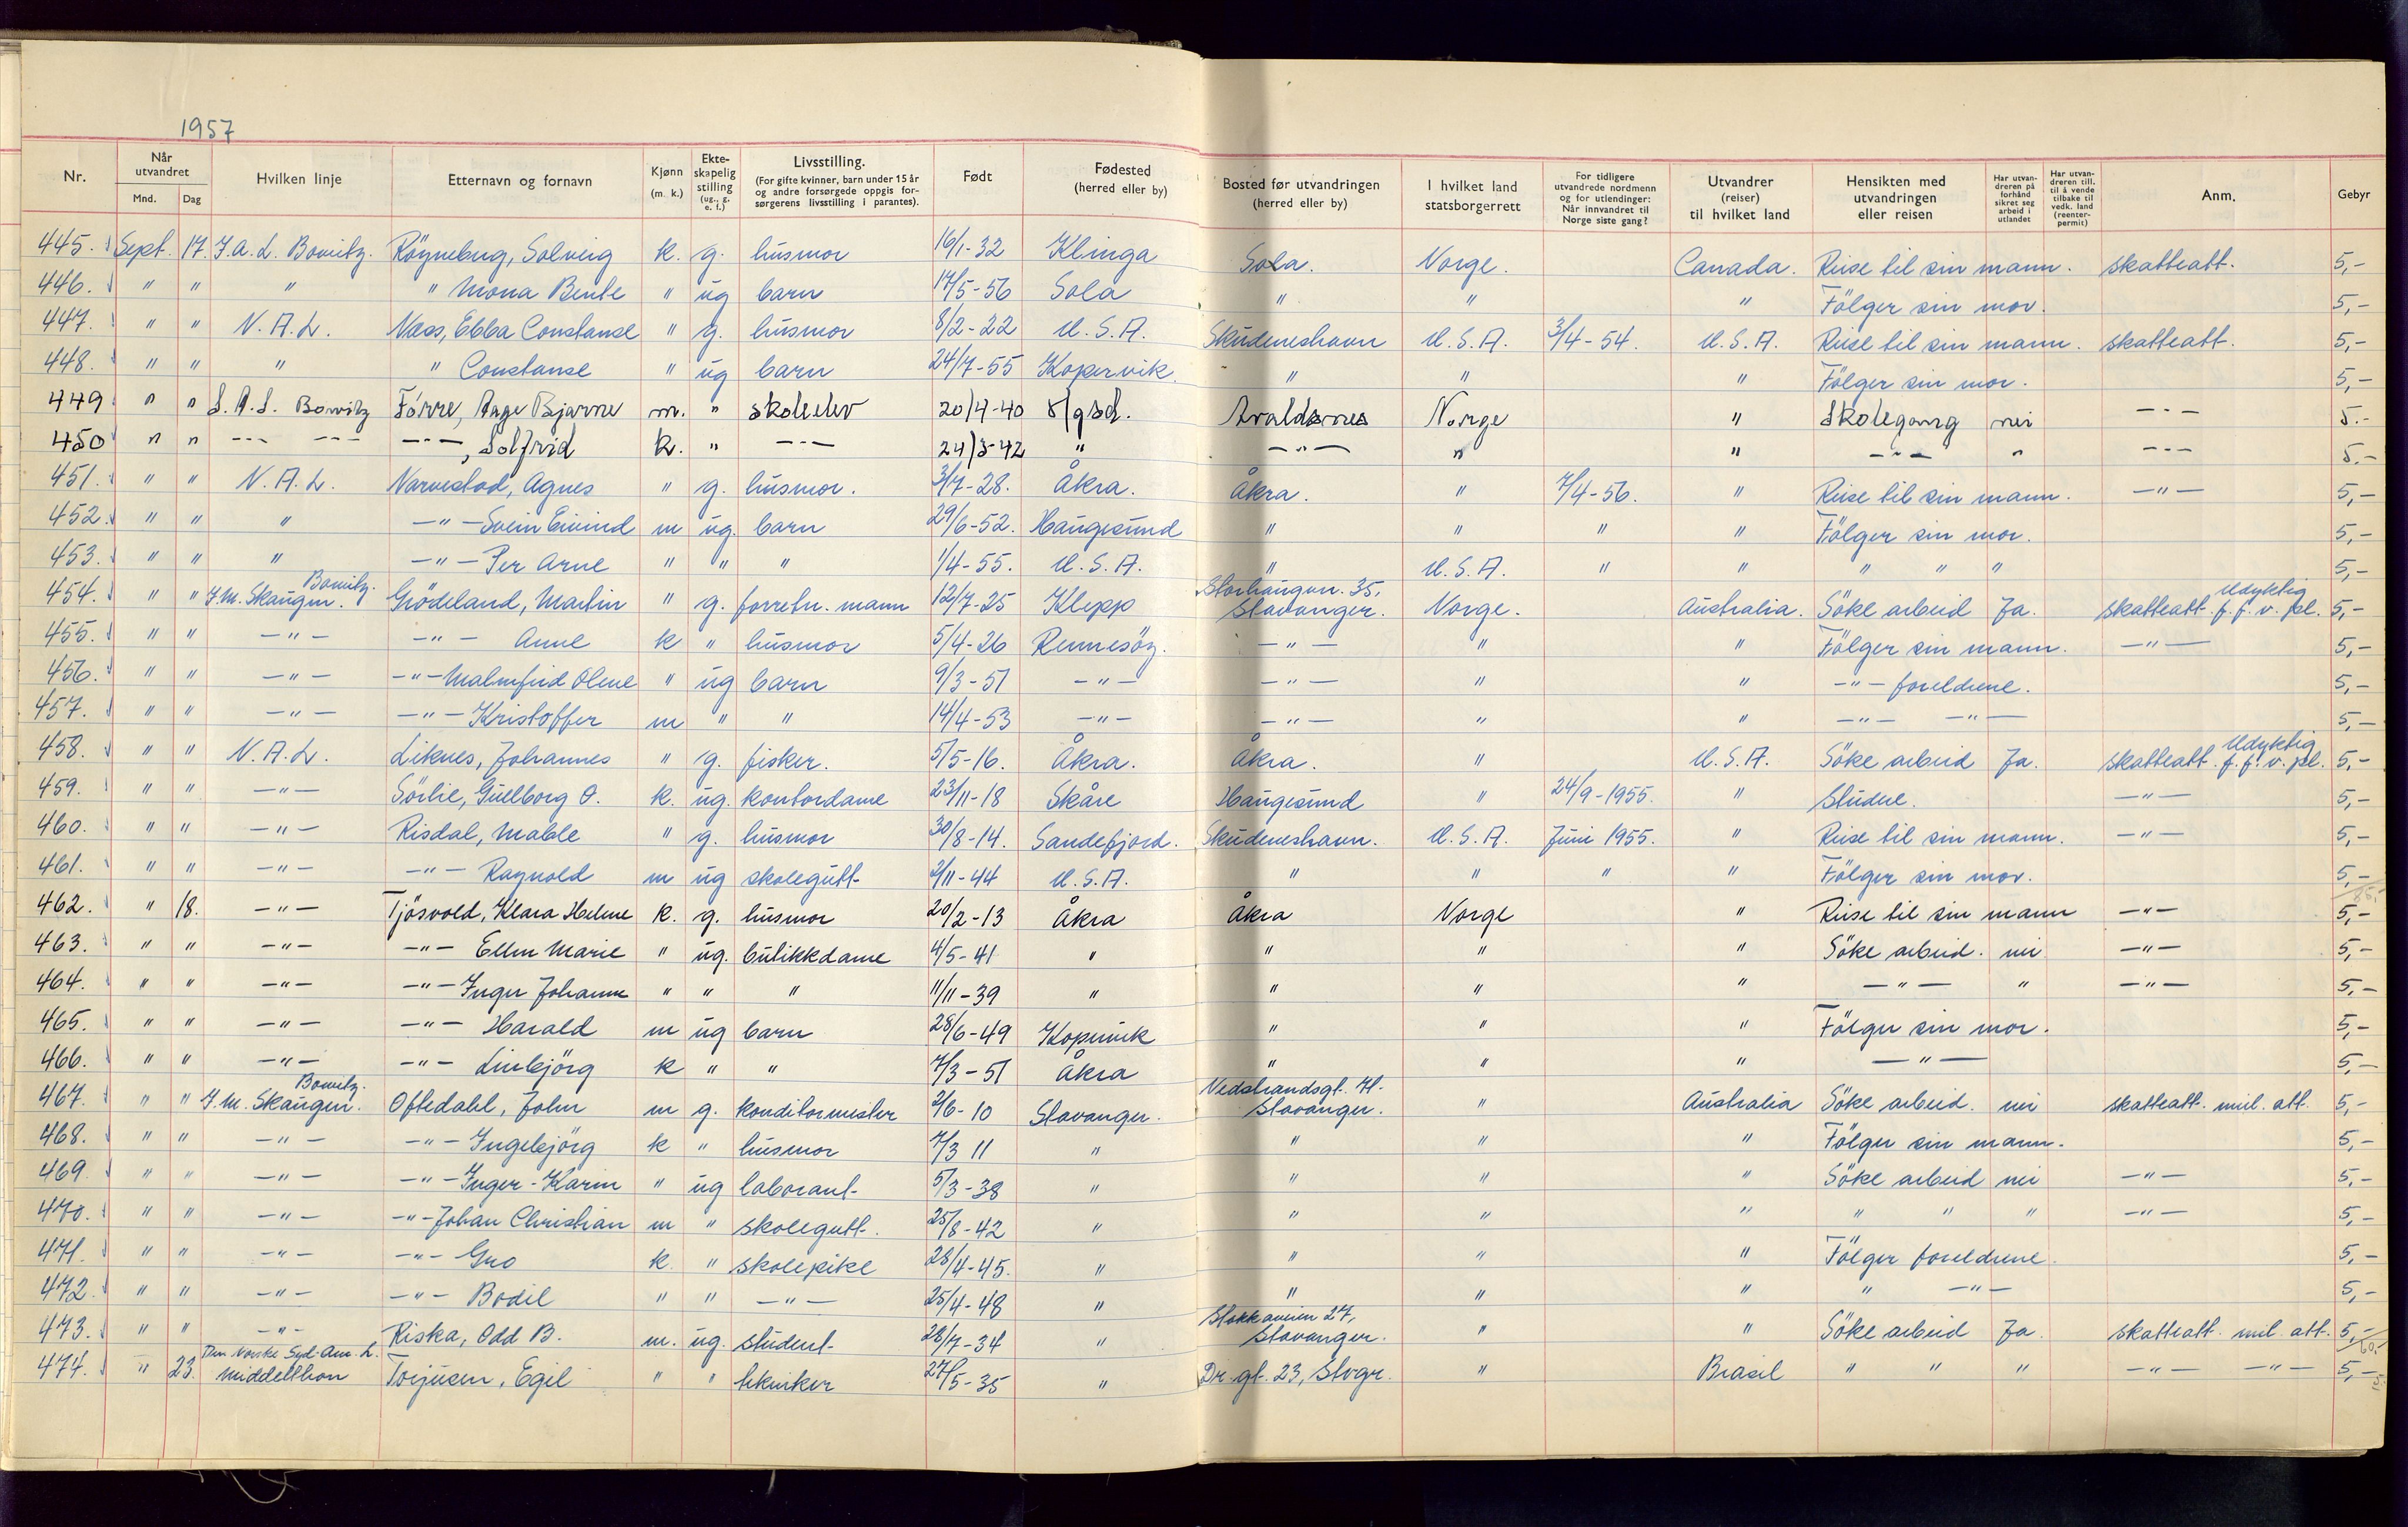 1957
Nr. Når utvandret Mnd. Dag Hvilken linje Etternavn og fornavn Kjønn (m. k.) Ekteskapelig stilling (ug., g. e. f.) Livsstilling. (For gifte kvinner, barn under 15 år og andre forsørgede oppgis forsørgerens livsstilling i parantes). Født Fødested (herred eller by) Bosted før utvandringen (herred eller by) I hvilket land statsborgerrett For tidligere utvandrede nordmenn og for utlendinger: Når innvandret til Norge siste gang? Utvandrer (reiser) til hvilket land Hensikten med utvandringen eller reisen Har utvandreren på forhånd sikret seg arbeid i utlandet Har utvandreren till. til å vende tilbake til vedk. land (reenterpermit) Anm. Gebyr
445. Sept. 17. S.A.L. Bowitz. Röyneberg, Solveig k. g. husmor 16/1-32 Klinga Sola. Norge. Canada. Reise til sin mann. skatteatt. 5,-
446. " " " " Mona Bente " ug barn 17/5-56 Sola " " " Fölger sin mor. 5,-
447. " " N.A.L. Næss, Ebba Constanse " g. husmor 8/2-22 U.S.A. Skudeneshavn U.S.A. 3/4-54. U.S.A. Reise til sin mann. skatteatt. 5,-
448. " " " " Constanse " ug barn 24/7-55 Kopervik. " " " Fölger sin mor. 5,-
449 " " S.A.L. Bowitz Førre, Aage Bjarne m. " skoleelev 20/4-40 Avaldsnes Norge " Skolegang nei -"- 5.-
450 " " -"- -"- -"-, Solfrid k. " -"- 24/3-42 " -"- " " -"- " -"- 5.-
451. " " N.A.L. Narvestad, Agnes " g. husmor. 3/7-28. Åkra. Åkra. " 7/4-56. " Reise til sin mann. -"- 5,-
452. " " " -"- Svein Eivind m ug. barn 29/6-52. Haugesund " " " " Fölger sin mor. 5,-
453. " " " -"- Per Arne " " " 1/4-55. U.S.A. " U.S.A. " " " " " 5,-
454. " " Bowitz. Grödeland, Martin " g. forretn. mann 12/7-25 Klepp Storhaugvn. 35, Stavanger. Norge. Australia. Söke arbeid Ja. skatteatt. Udyktig f. f. v. pl. 5,-
455. " " -"- -"- Anne k " husmor 5/4-26 Rennesöy. -"- " " Fölger sin mann. -"- 5,-
456. " " -"- -"- Malmfrid Olene " ug barn 9/3-51 -"- -"- " " -"- foreldrene. 5,-
457. " " -"- -"- Kristoffer m " " 14/4-53 -"- -"- " " -"- -"- 5,-
458. " " N.A.L. Liknes, Johannes " g. fisker. 5/5-16. Åkra. Åkra. " U.S.A. Söke arbeid Ja. skatteatt. Udyktig f. f. v. pl. 5,-
459. " " -"- Sörlie, Gullborg O. k. ug. kontordame 23/11-18 Skåre Haugesund " 24/9-1955. " Studere. -"- 5,-
460. " " -"- Risdal, Mable " g. husmor 30/8-14. Sandefjord. Skudeneshavn. U.S.A. Juni 1955. " Reise til sin mann. -"- 5,-
461. " " -"- -"- Ragnold m ug skolegutt 2/11-44 U.S.A. " " " " Fölger sin mor. 5,-
462. " 18. -"- Tjösvold, Klara Helene k. g. husmor 20/2-13 Åkra Åkra Norge " Reise til sin mann -"- 5,-
463. " " -"- -"- Ellen Marie " ug. butikkdame 4/5-41 " " " " Söke arbeid. nei -"- 5,-
464. " " -"- -"- Inger Johanne " " " 11/11-39 " " " " -"- " -"- 5,-
465. " " -"- -"- Harald m ug barn 28/6-49 Kopervik " " " Fölger sin mor. 5,-
466. " " -"- -"- Linbjörg k " " 7/3-51 Åkra " " " -"- 5,-
467. " " Bowitz. Oftedahl, John m g. konditormester 2/6-10 Stavanger. Stavanger. " Australia Söke arbeid. nei skatteatt. mil. att. 5,-
468. " " -"- -"- Ingebjörg k " husmor 7/3 11 " " " " Fölger sin mann. 5,-
469 " " -"- -"- Inger-Karin " ug laborant 5/3-38 " " " " Söke arbeid nei -"- 5,-
470. " " -"- -"- Johan Christian m " skolegutt. 25/8-42 " " " " " " " -"- 5,-
471. " " -"- -"- Gro k " skolepike 28/4-45. " " " " Fölger foreldrene. 5,-
472. " " -"- -"- Bodil " " -"- 25/4-48 " " " " " -"- 5,-
473. " " -"- Riska, Odd B. m. ug. student 28/7-34 " Stokkaveien 27, Stavanger. " " Söke arbeid Ja. skatteatt. mil. att. 5,-
474. " 23. Den Norske Syd-Am. L. Middelthon Torjusen, Egil " " tekniker 27/5-35 " Dr. gt. 23, Stvgr. " Brasil " " " -"- -"- 5,-